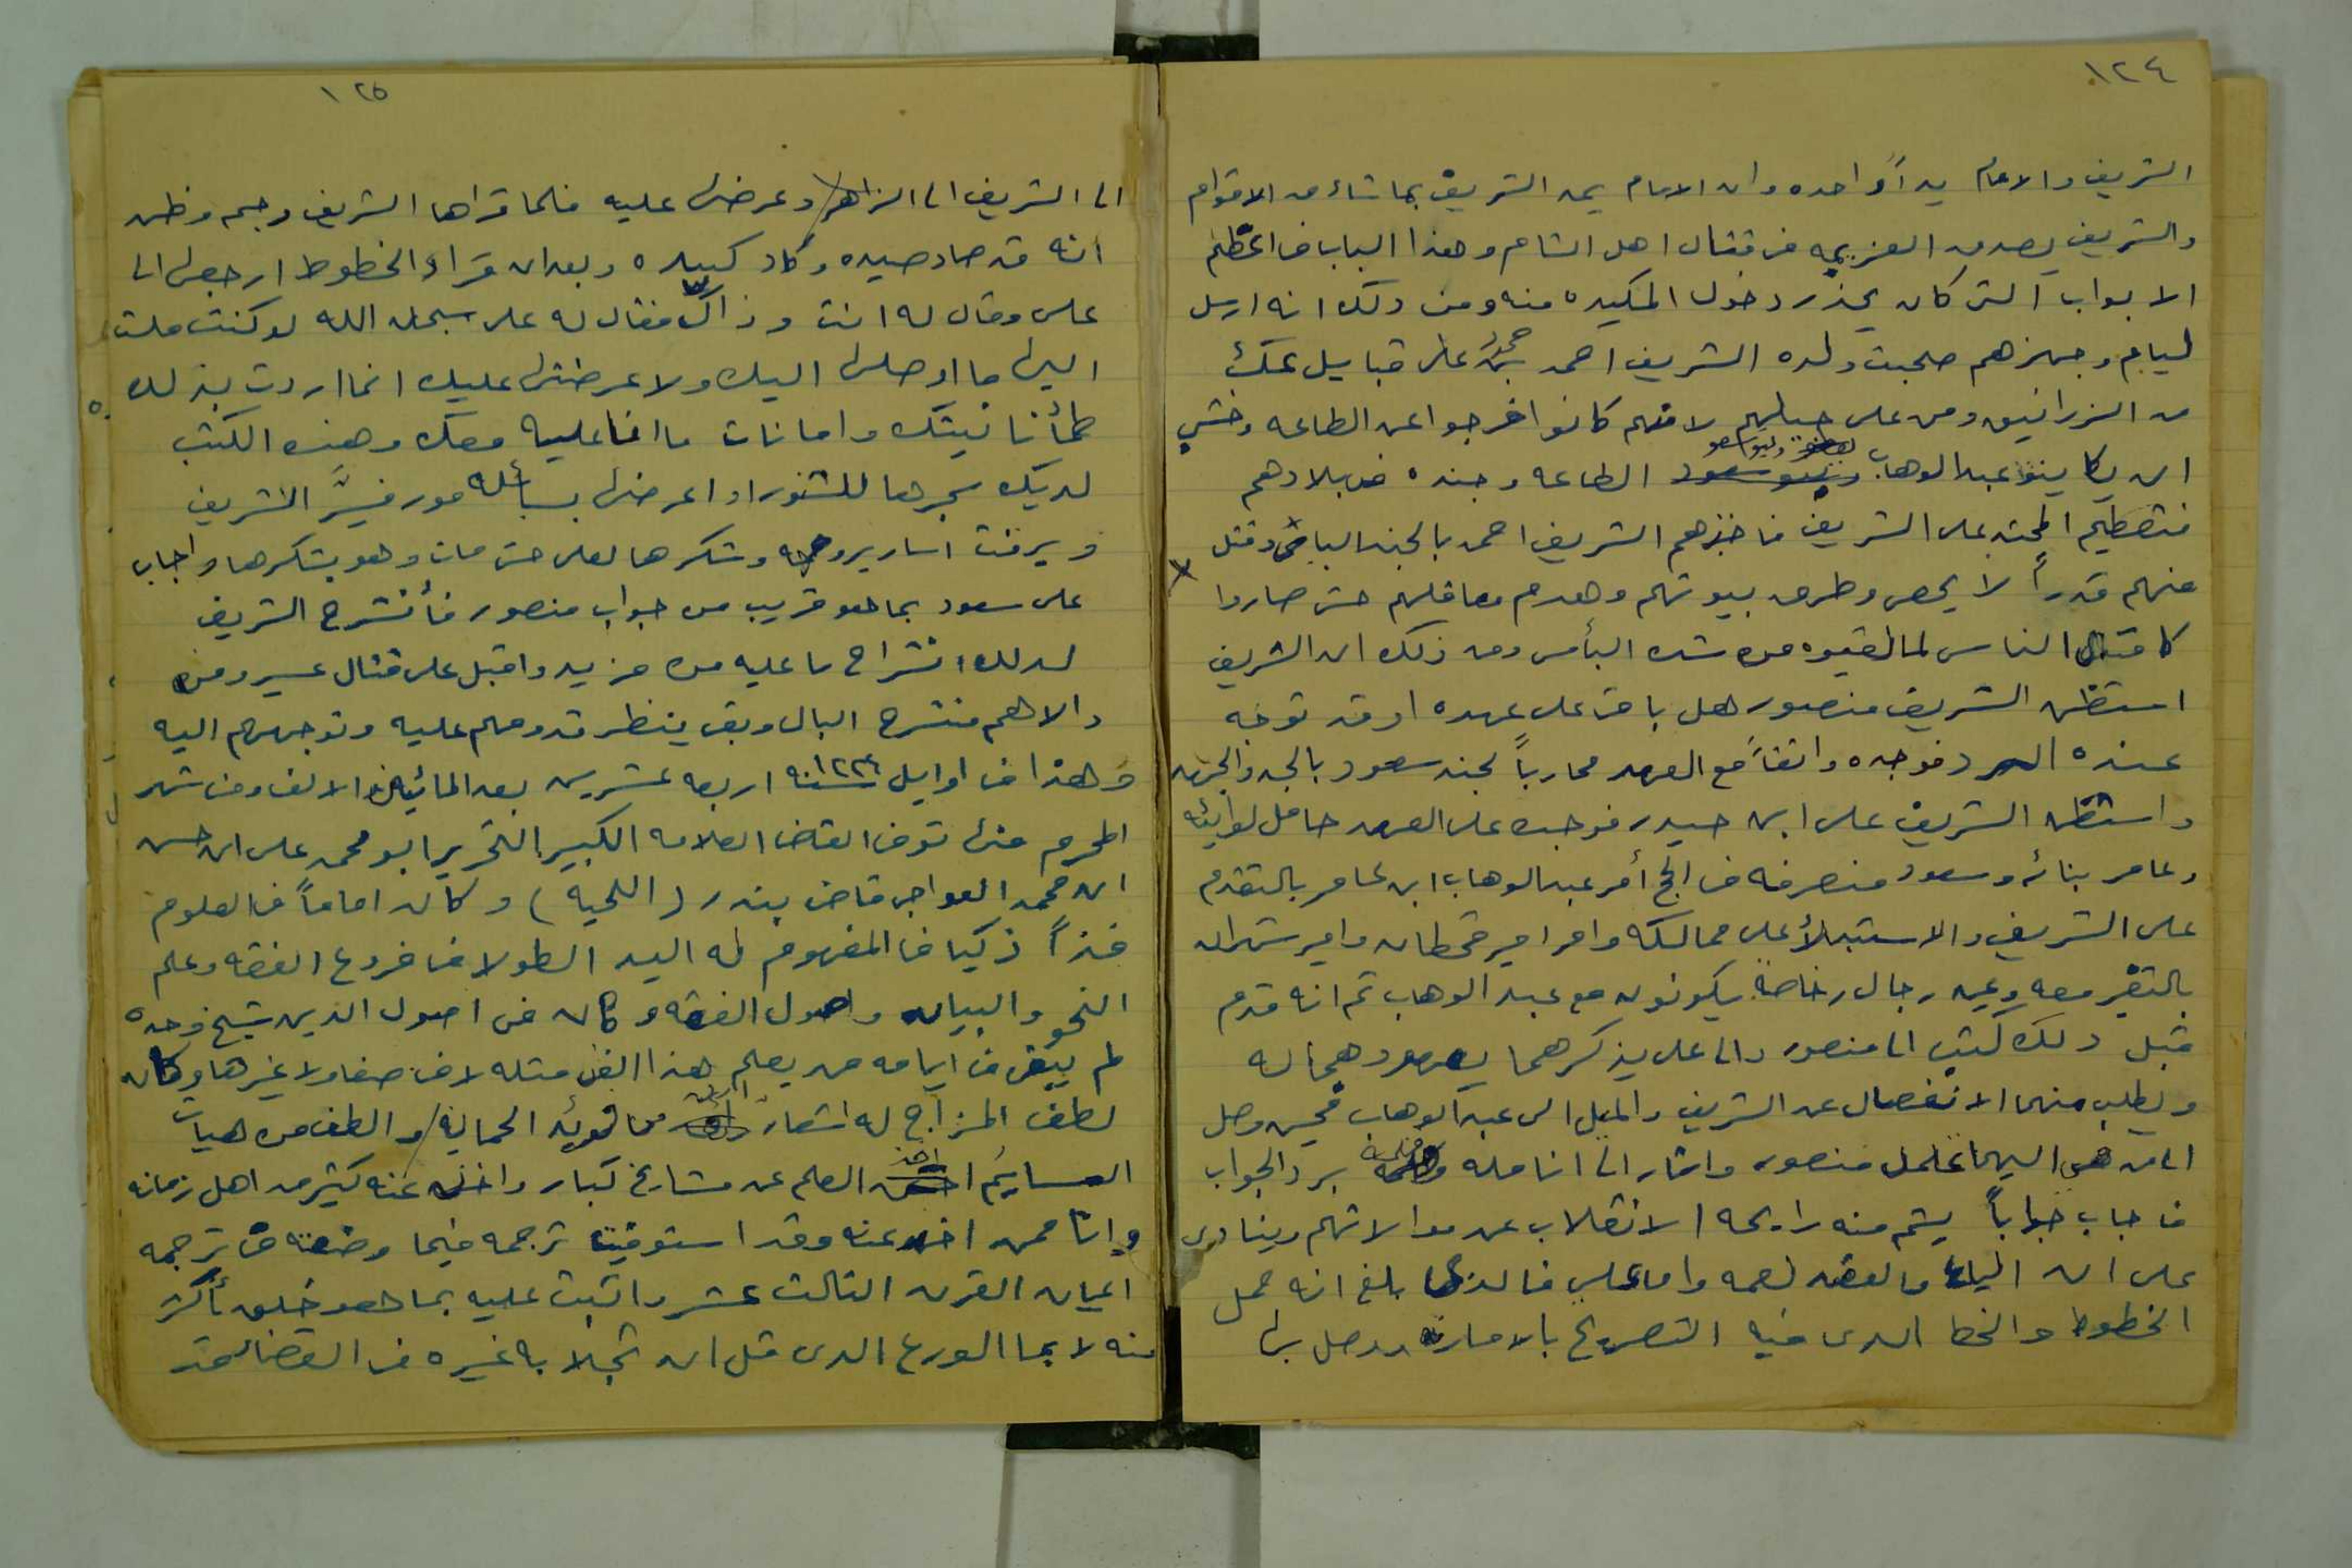 ١٢٤
الشريف والامام يداً واحده وان الامام يمد الشريف بما شاء من الاقوام
والشريف يصدق العزيمه في قتال اهل الشام وهذا الباب من اعظم
الابواب التي كان يحذر دخول المكيده منه ومن ذلك انه ارسل
ليام وجهزهم صحبت ولده الشريف احمد بن حمود على قبايل عك
من الزرانيق ومن على حبلهم لانهم كانوا خرجوا عن الطاعه وخشي
ان يكاتبوا عبد الوهاب الطاعه وجنده في بلادهم
فتعظم المحنه على الشريف فاخذهم الشريف احمد بالجند اليامي وقتل
منهم قدراً لا يحصى وطرق بيوتهم وهدم معاقلهم حتى صاروا
كاقتل الناس لما لقيوه من شده البأس ومن ذلك ان الشريف
استظهر الشريف منصور هل باقي على عهده او قد توجه
عنده الرد فوجده واقفاً مع العهد محارباً لجند سعود بالجد والجهد
واستظهر الشريف على ابن حيدر فوجده على العهد حامل لوائه
وعامر بنائه وسعود منصرفه من الحج أمر عبد الوهاب ابن عامر بالتقدم
على الشريف والاستيلأ على ممالكه وامر امير قحطان وامير شهران
بالنفر معه وعين رجال خاصة يكونون مع عبد الوهاب ثم انه قدم
قبل ذلك كتب الى منصور والى على يذكرهما بعهودهما له
ويطلب منهما الانفصال عن الشريف والميل الى عبد الوهاب فحين وصل
اليهما منصور واشار الى انامله برد الجواب
فاجاب جواباً يشم منه رايحه الانقلاب عن موالاتهم وينادى
على ان واما على فالذي بلغ انه حمل
الخطوط والخط الذى فيه التصريح بالاماره ووصل بها
١٢٥
الى الشريف الى الزاهر وعرضها عليه فلما قراها الشريف وجم وظن
انه قد صاد صيده وكاد كيده وبعد ان قراء الخطوط ارجعها الى
على وقال له انت وذاك فقال له على سبحان الله لو كنت ملت
اليها ما اوصلها اليك ولا عرضتها عليك انما اردت بذلك
طمأنانيتك وامانات ما انا عليه معك وهذه الكتب
لديك سجرها للتنور او اعرضها فسر الشريف
وبرقت اسارير وجهه وشكرها لعلى حتى مات وهو يشكرها واجاب
على سعود بما هو قريب من جواب منصور فأنشرح الشريف
لذلك انشراح ما عليه من مزيد واقبل على قتال عسير ومن
والاهم منشرح البال وبقى ينظر قدومهم عليه وتوجههم اليه
وهذا في اوايل سنه ١٢٢٤ اربعه عشرين بعد المائيتن والالف وفي شهر
المحرم منها توفى القاضى العلامه الكبير النحرير ابو محمد على ابن حسن
ابن محمد العواجى قاضى بندر (اللحيه) وكان اماماً في العلوم
فذاً ذكيا في المفهوم له اليد الطولا في فروع الفقه وعلم
النحو والبيان واصول الفقه وكان في اصول الدين شيخ وحده
لم يبقى في ايامه من يعلم هذا الفن مثله لا في صنعاء ولا غيرها وكان
لطف المزاج له اشعار ارق من الحمايم والطف من هبات
النسايم اخذ العلم عن مشايخ كبار واخذ عنه كثير من اهل زمانه
وانا ممن اخذ عنه وقد استوفيت ترجمه فيما وضعته في ترجمه
اعيان القرن الثالث عشر واثنيت عليه بما هو خليق بأكثر
منه لا بما الورع الذى قل ان تحلا به غيره في القضاء فقد